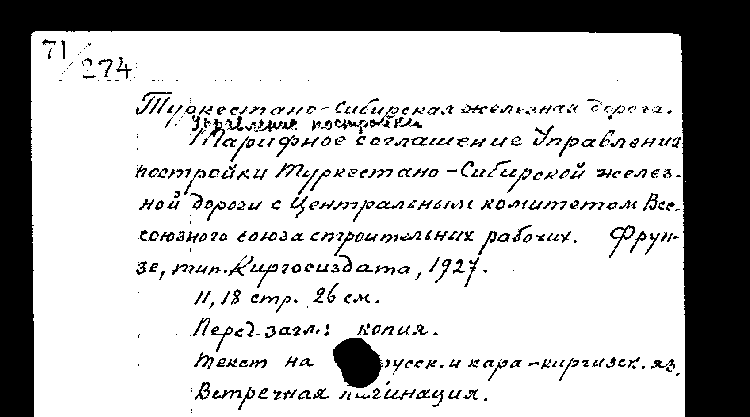 71/274
Туркестано-Сибирская железная дорога.
Управление постройки
Тарифное соглашение Управления
постройки Туркестано-Сибирской желез-
ной дороги с Центральным комитетом Все-
союзного союза строительных рабочих. Фрун-
зе, тип. Киргосиздата, 1927.
11, 18 стр. 26 см.
Перед загл.: копия.
Текст на русск. и кара-киргизск. яз.
Встречная пагинация.